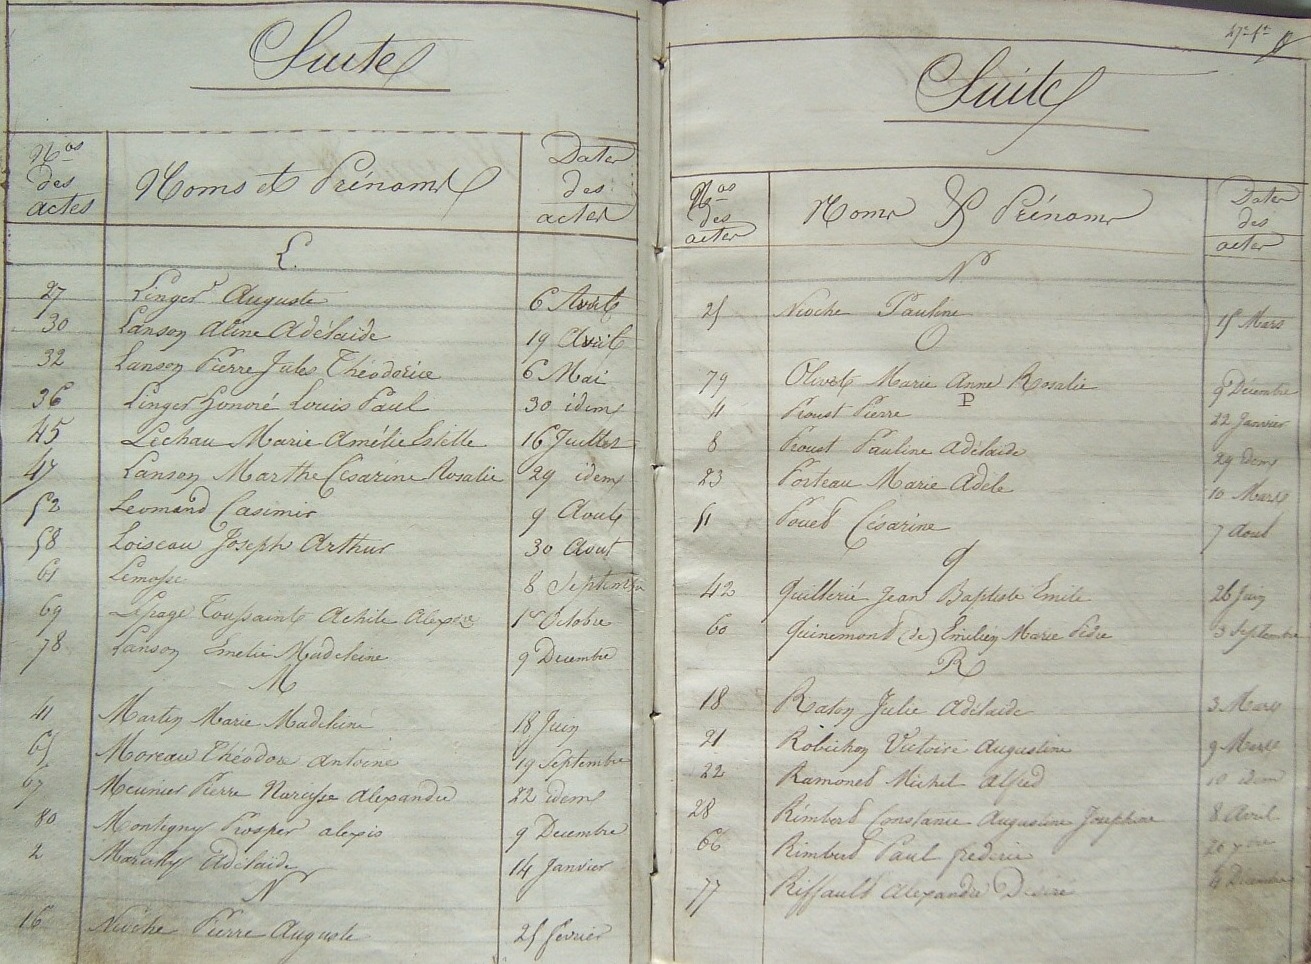 Suite
Nos
des
actes
Noms et Prénoms
Dates
des
actes
L.
27 Linger Auguste 6 Avril
30 Lanson Aline Adélaide 19 Avril
32 Lanson Pierre Jules Théodorice 6 Mai
36 Linger Honoré Louis Paul 30 idem
45 Lechau Marie Amélie Estelle 16 Juillet
47 Lanson Marthe Césarine Rosalie 29 idem
52 Leomand Casimir 9 Aout
58 Loiseau Joseph Arthur 30 Aout
61 8 Septembre
69 Lepage Toussaint Achile Alexdre 1er Octobre
78 Lanson Emelie Madeleine 9 Decembre
M
41 Martin Marie Madeleine 18 Juin
65 Moreau Théodore Antoine 19 Septembre
67 Meunier Pierre Narcisse Alexandre 22 idem
80 Montigny Prosper alexis 9 Decembre
2 Adélaide 14 Janvier
N
16 Nioche Pierre Auguste 25 février
Suite
Nos
des
actes
Noms & Prénoms
Dates
des
actes
N
25 Nioche Pauline 15 Mars
O
79 Olivet Marie Anne Rosalie 9 Décembre
P
4 Proust Pierre 22 Janvier
8 Proust Pauline Adélaide 29 idem
23 Porteau Marie Adèle 10 Mars
51 Pouet Césarine 7 Aout
q
42 Quillerié Jean Baptiste Emile 26 Juin
60 Quinemont (de) Emilien Marie 3 Septembre
R
18 Raton Julie Adélaide 3 Mars
21 Robichon Victoire Augustine 9 Mars
22 Ramonet Michel Alfred 10 idem
28 Rimbert Constance Augustine Josephine 8 Avril
66 Rimbert Paul frederic 20 7bre
77 Riffault Alexandre Désiré Décembre